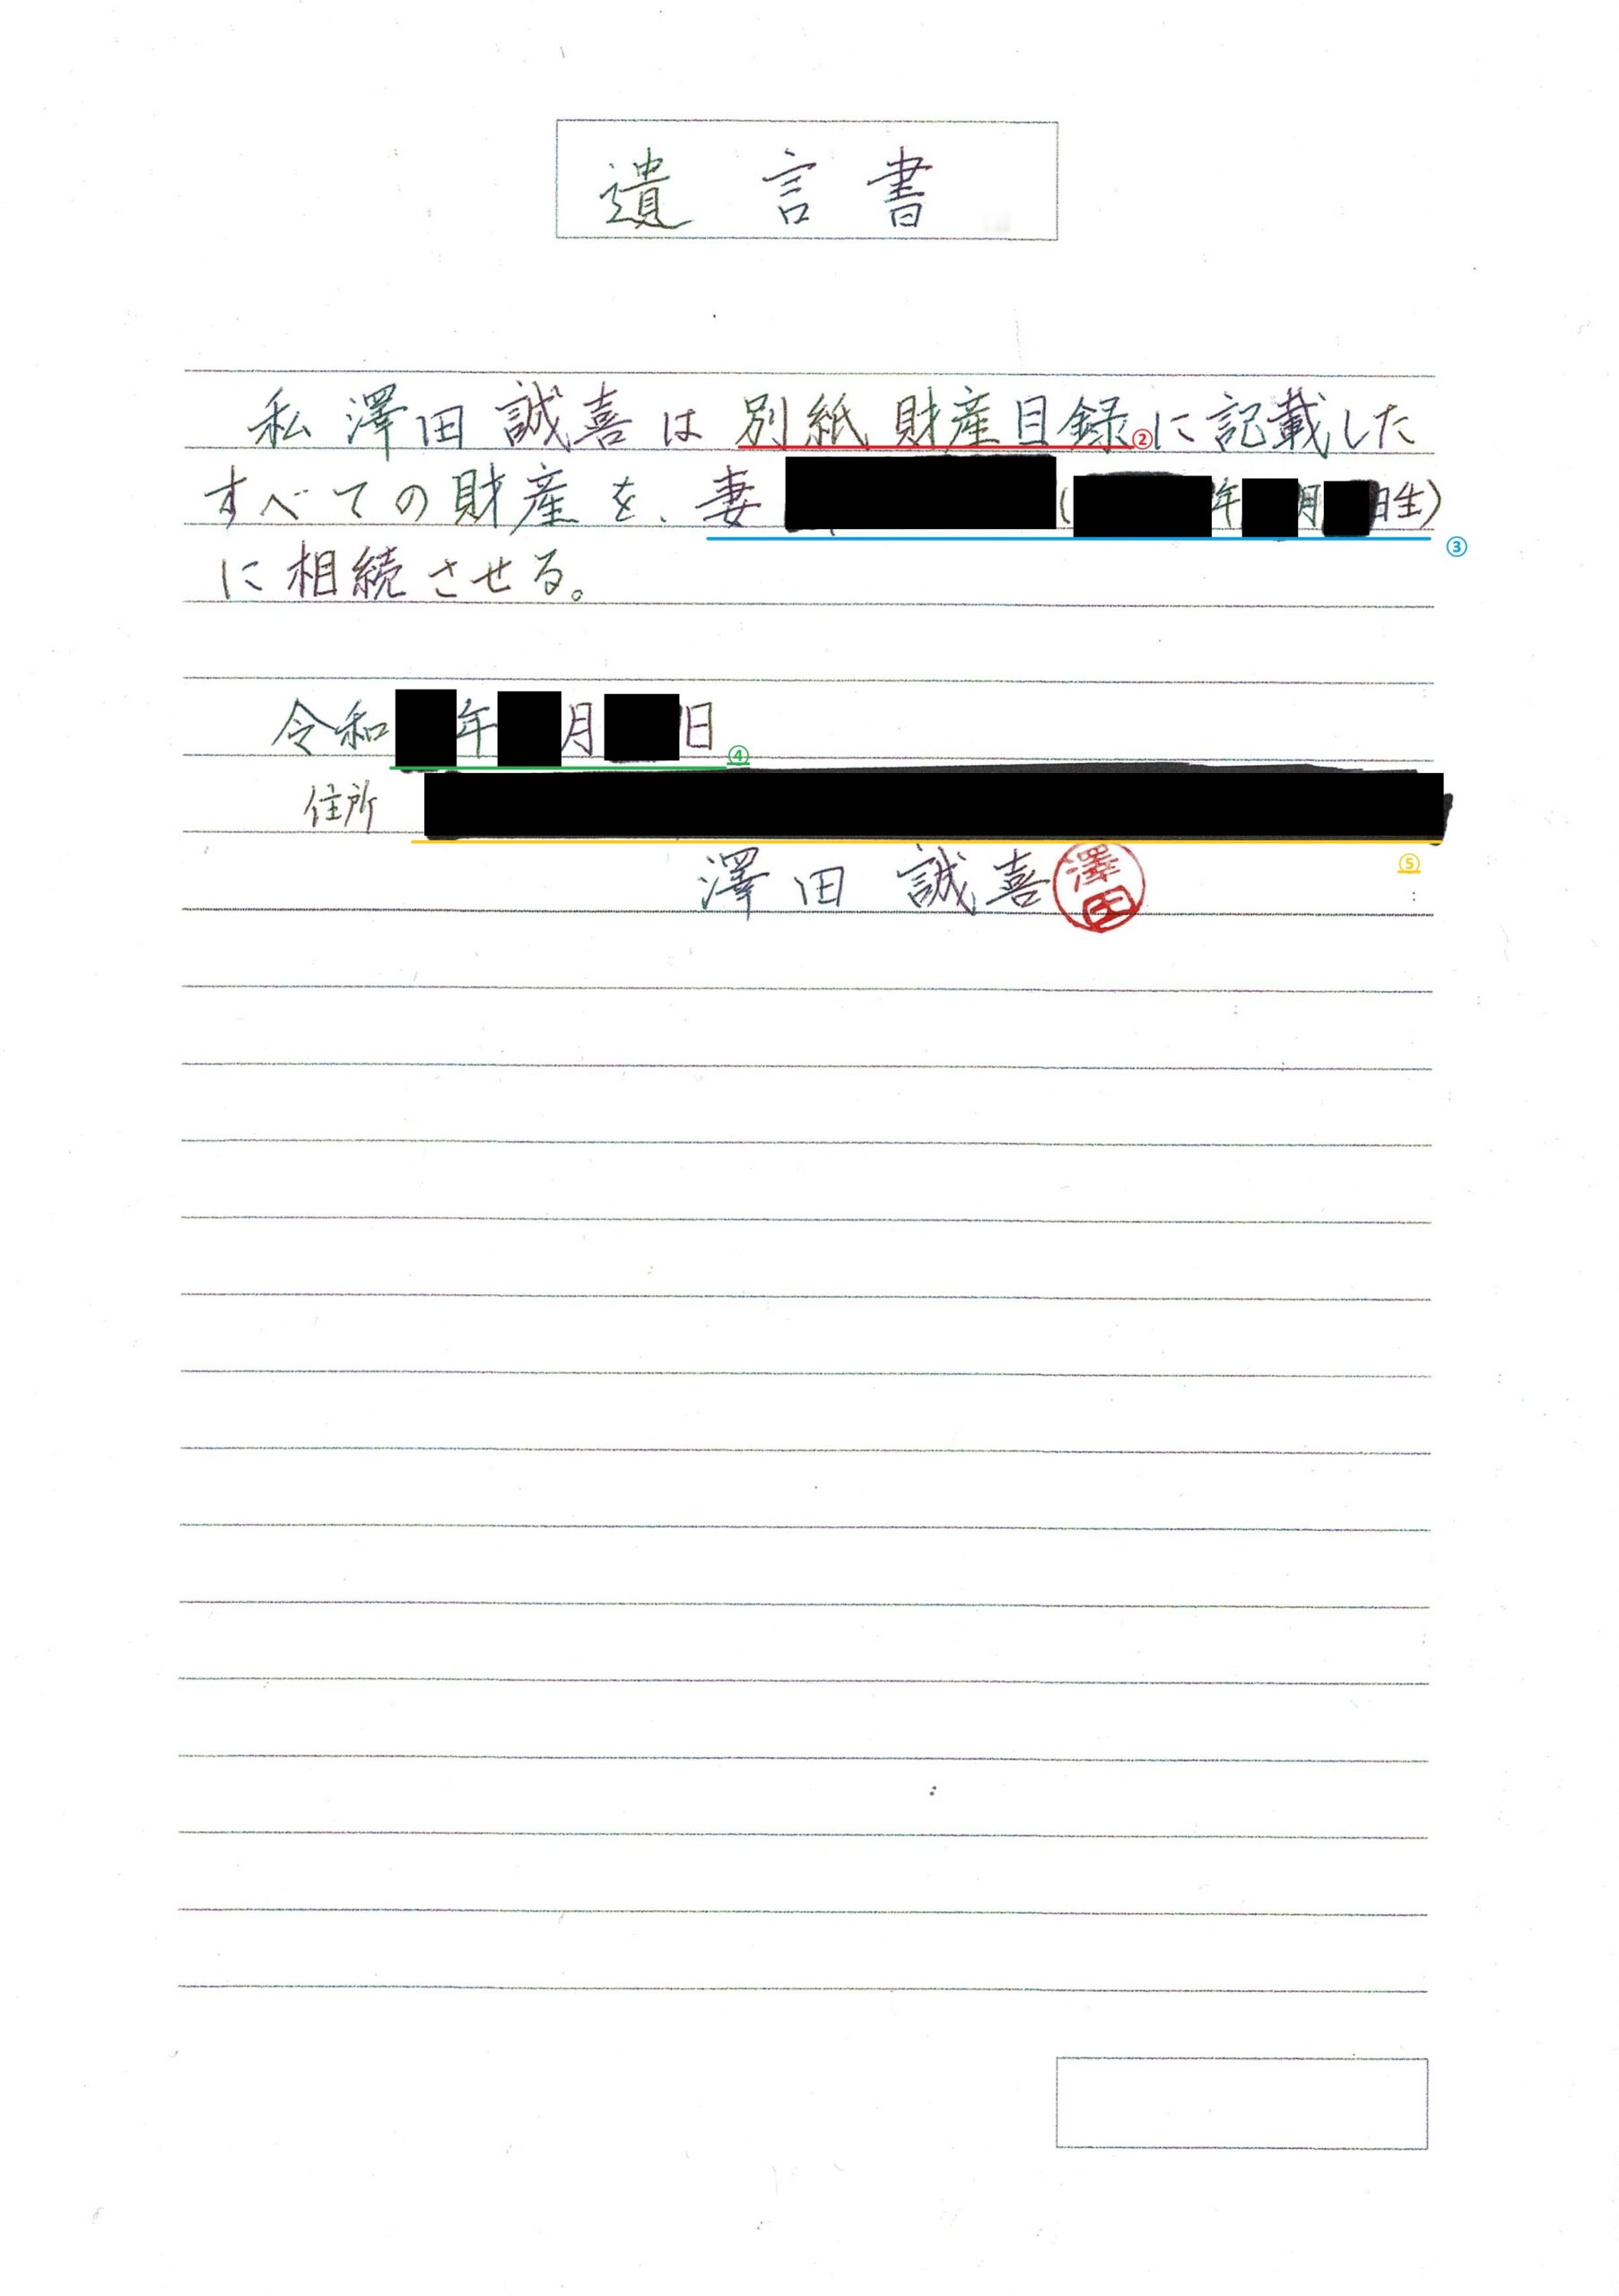 遺言書
私 澤田 誠喜は 別紙 財産目録②に記載した
すべての財産を、妻 (年月日生)
③
に相続させる。
令和年月日
④
住所
⑤
澤田 誠喜 澤田